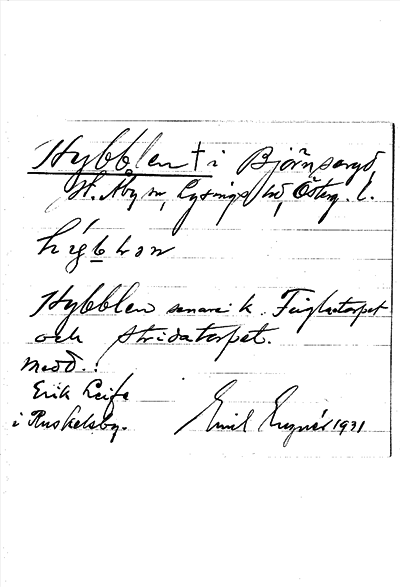 Hybblen † i Björnseryd,
V. Åby sn, Lysings hd, Österg. l.
Hybblen senare k. Fågletorpet
och Stridatorpet.
Medd.:
Erik Leife
i Ruskelsby.
Emil 1931